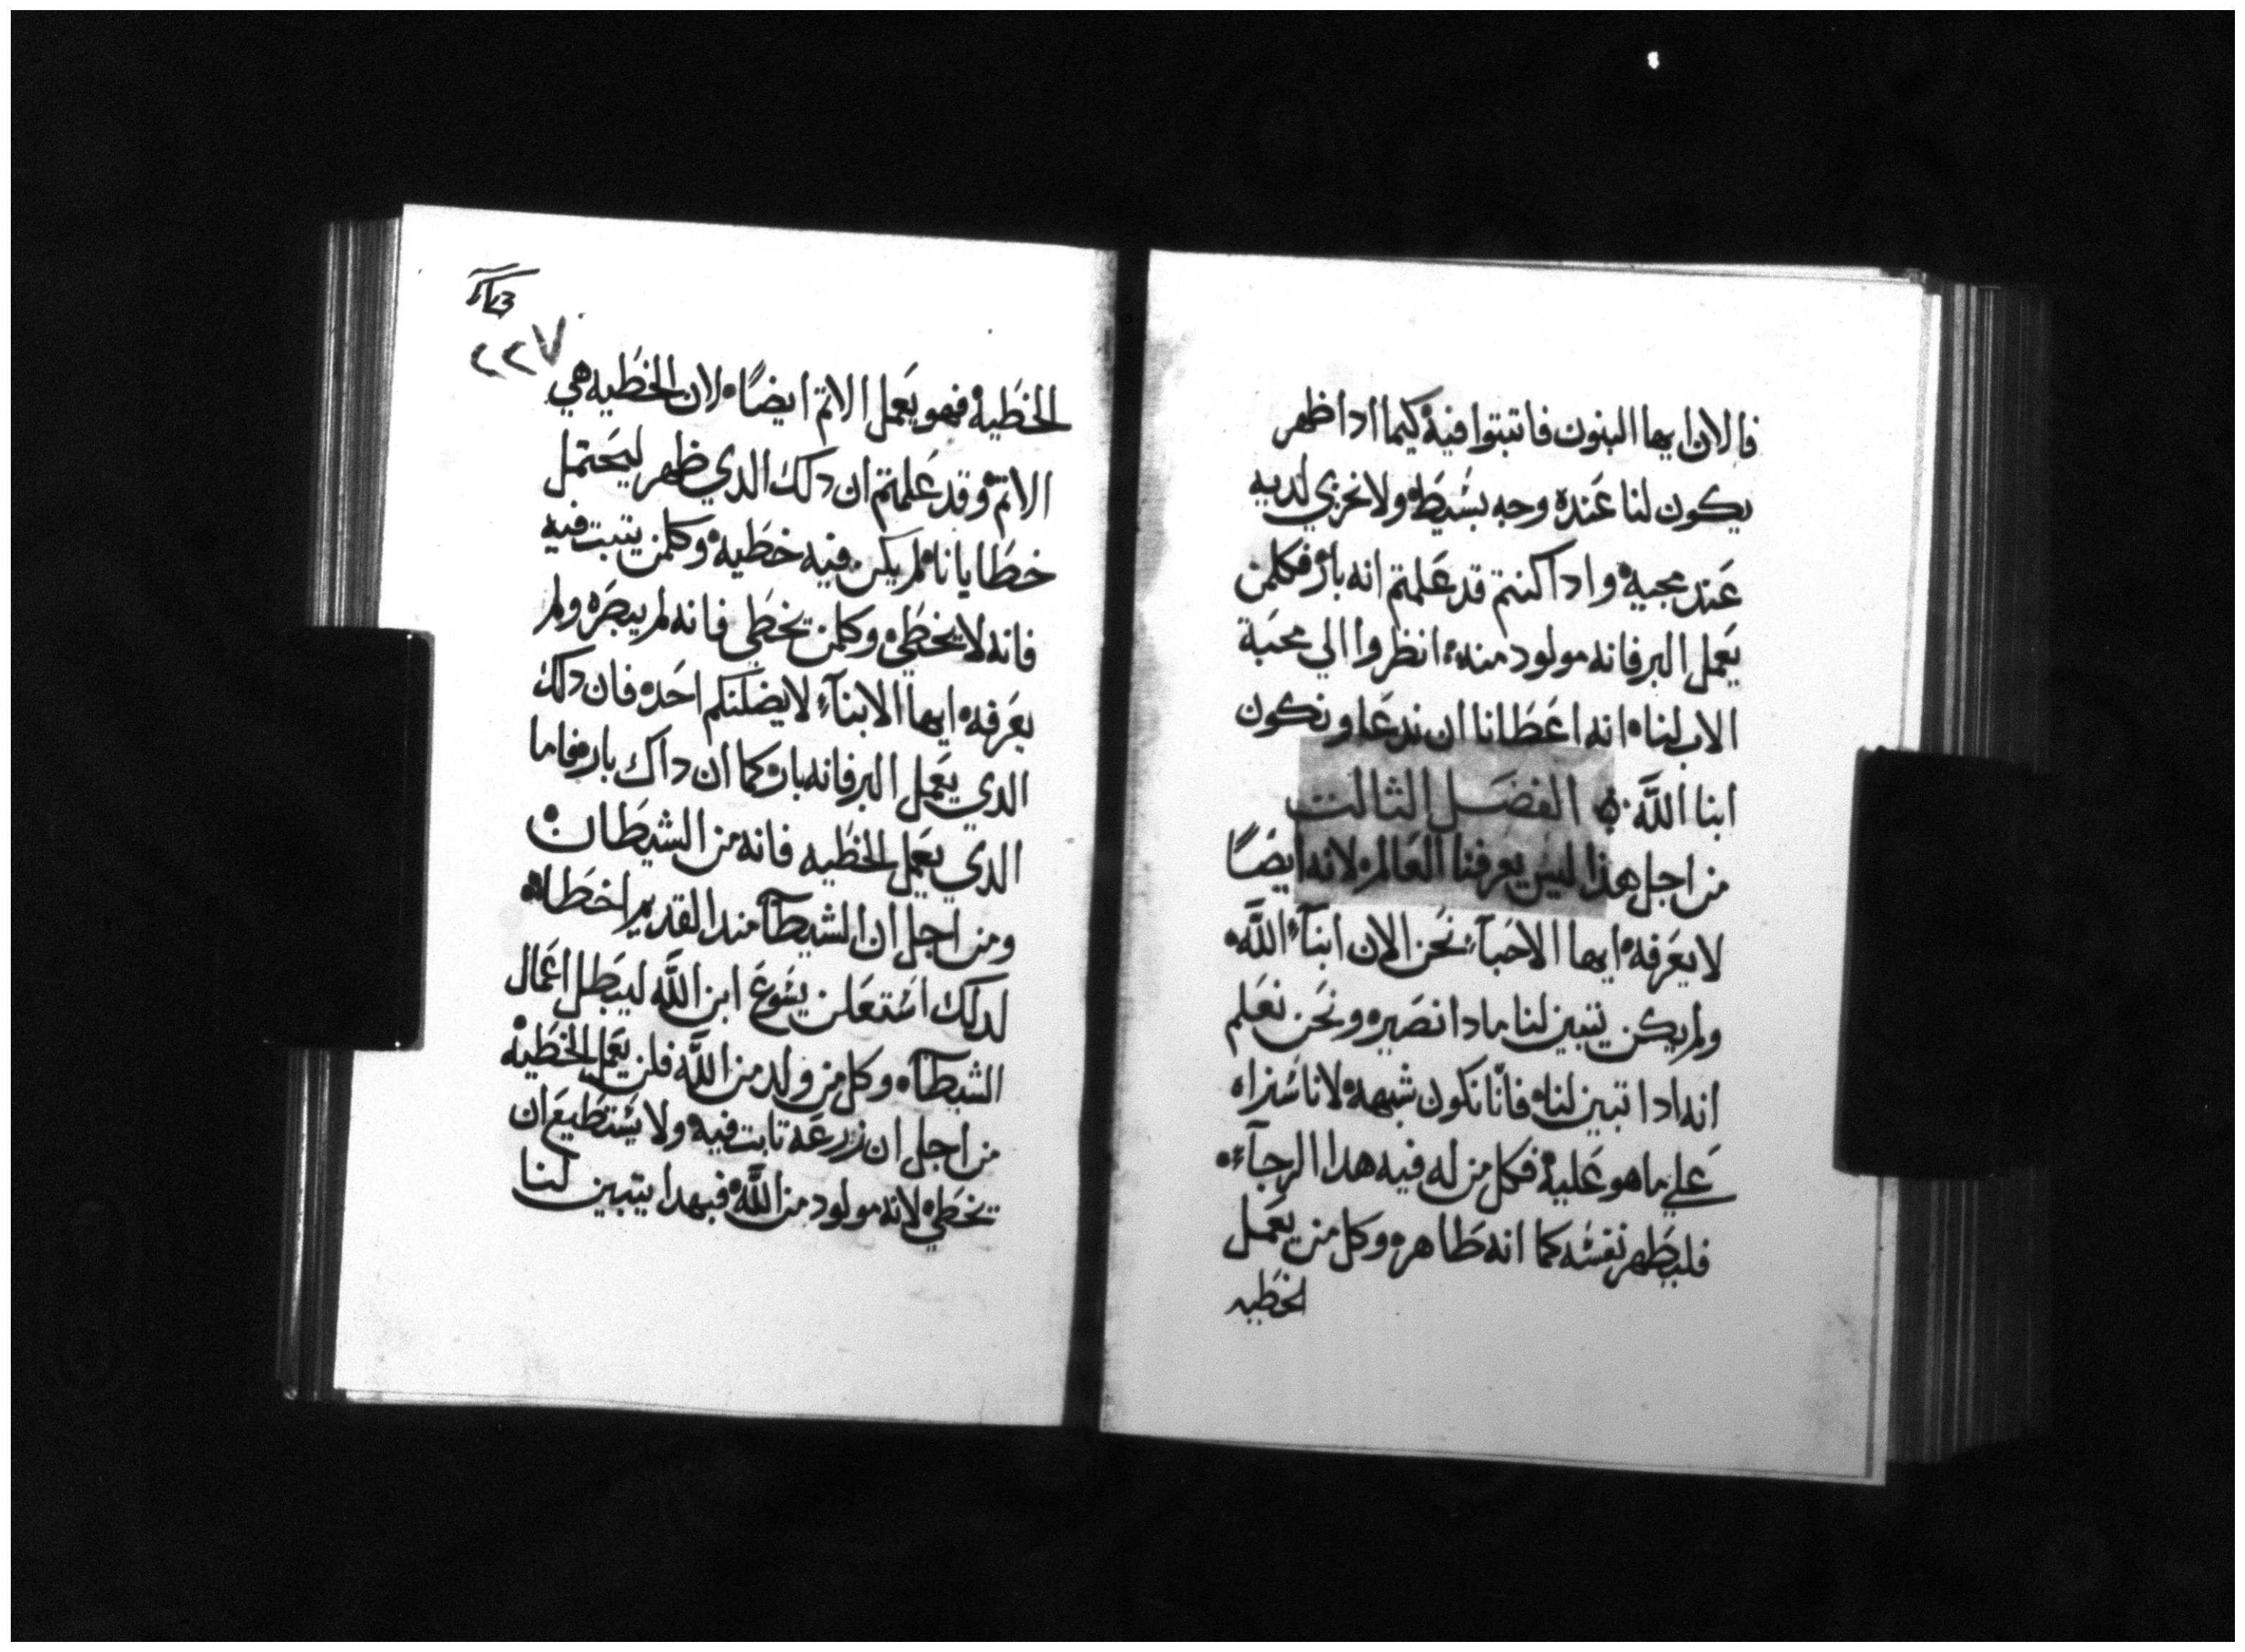 فالان ايها البنون فاتبتوا فيه كيما ادا ظهر
يكون لنا عَنده وجه بسَيطه ولا نخزي لديه
عَند مجيه وادا كنتم قد عَلمتم انه بار فكلمن
يعَمل البر فانه مولود منه انظروا الي محبَة
الاب لنا انه اعَطَانا ان ندعَا ونكون
ابنا اللَّه الفصَل الثالت
من اجل هذا ليس يعرفنا العَالم لانه ايضَاً
لا يعَرفه ايها الاحَبآء نحَن الان ابنآء اللَّه
ولم يكن يتبين لنا مادا نصَير ونحَن نعَلم
انه ادا تبين لنا فانّا نكون شبهه لانا سَنراه
عَلي ما هو عَليه فكل من له فيه هدا الرجآء
فليطَهر نفسَه كما انه طَاهر وكل من يعَمل
الخطَيه
٢٢٧
الخطَيه فهو يعَمل الاتم ايضَاً لان الخطَيه هي
الاتم وقد عَلمتم ان دلك الدي ظهر ليحَتمل
خطَايانا لم يكن فيه خطَيه وكلمن يتبت فيه
فانه لا يخطَي وكلمن يخطَي فانه لم يبصَره ولم
يعَرفه ايها الابنآء لا يضلنكم احَد فان دلك
الدي يعَمل البر فانه بار كما ان داك بار فاما
الدي يعَمل الخطَيه فانه من الشيطَان
ومن اجل ان الشيطآ مند القديم اخطَا
لدلك اسَتعَلن يسَوعَ ابن اللَّه ليبطَل اعَمال
الشيطآ وكل من ولد من اللَّه فلن يعَمل الخطَيه
من اجل ان زرعَه تابت فيه ولا يسَتطَيعَ ان
يخطَي لانه مولود من اللَّه فبهدا يتبين لنا